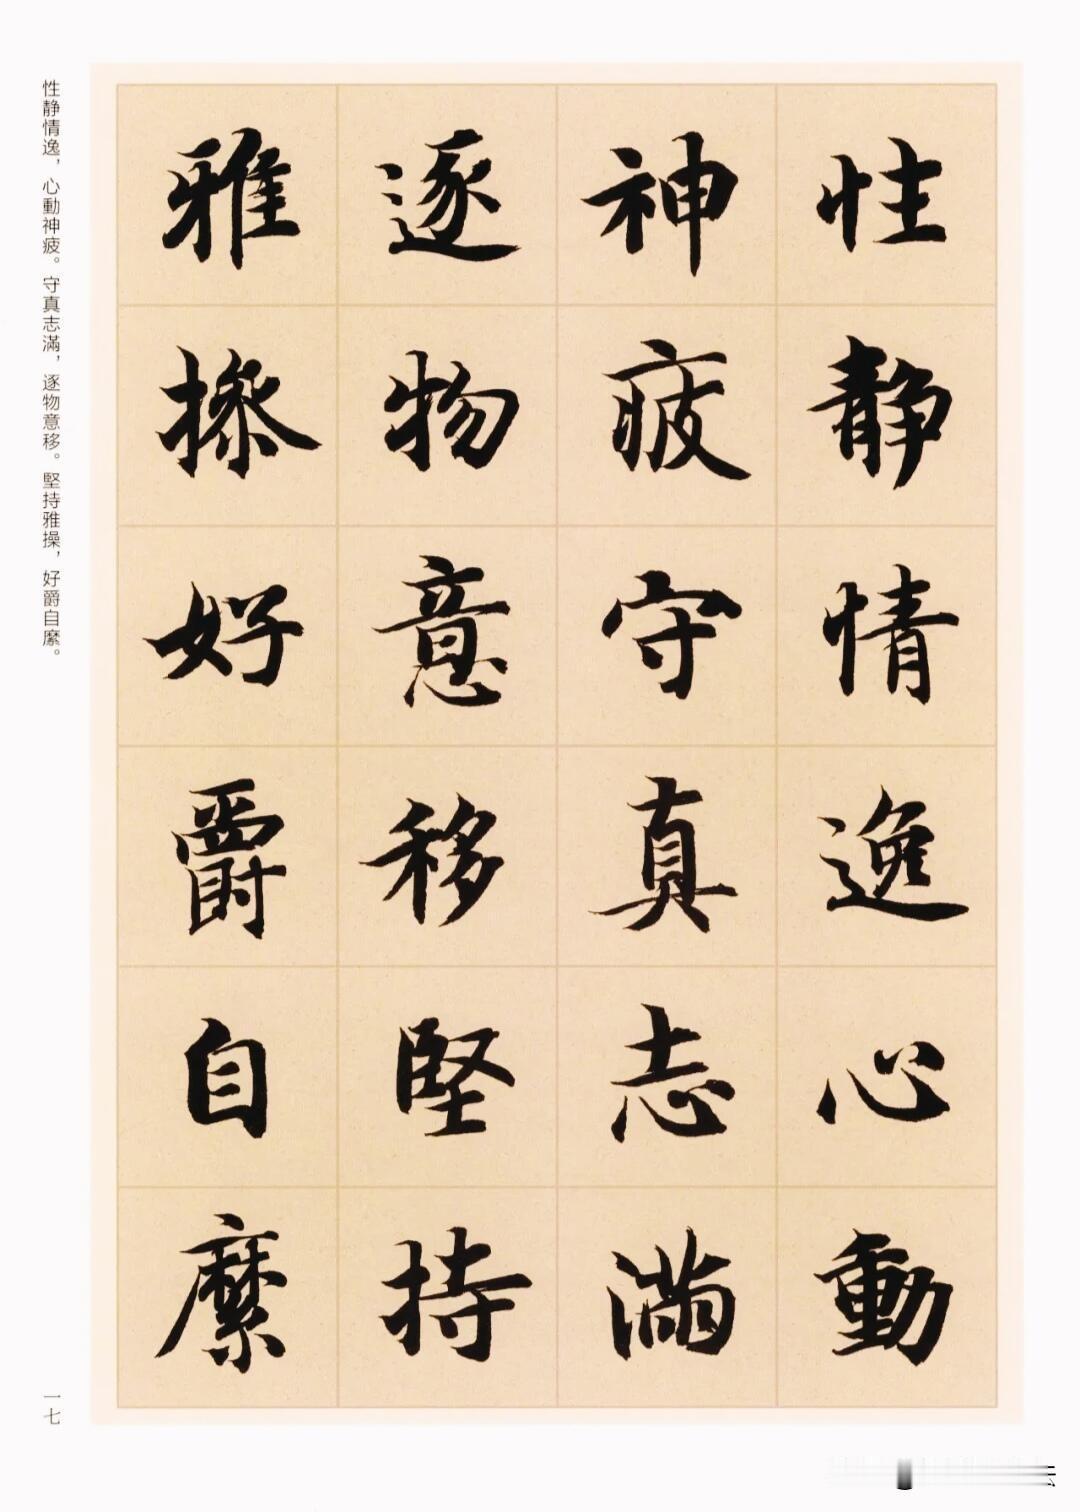 性静情逸心動
神疲守真志滿
逐物意移堅持
雅操好爵自縻
性静情逸，心動神疲。守真志滿，逐物意移。堅持雅操，好爵自縻。
一七